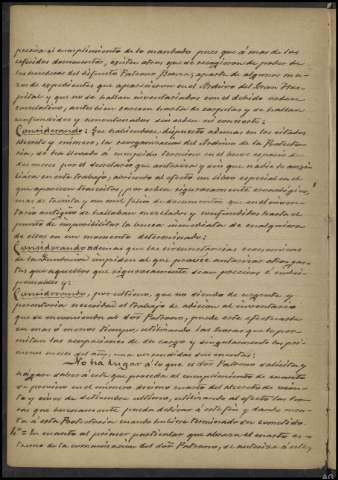 precisa el cumplimiento de lo mandado, pues que á mas de los
referidos documentos, existen otros que se recogieron de poder de
los herederos del difunto Patrono Ibarra; aparte de algunos ma-
zos de expedientes que aparecieron en el Archivo del Gran Hos-
pital y que no se hallan inventariados con el debido orden
correlativo, antes bien carecen muchos de carpetas y se hallan
confundidos y amontonados sin orden ni concierto;
Considerando: Que habiéndose dispuesto ademas en los citados
decreto y número, la reorganizacion del Archivo de la Protecto-
ria, se ha llevado á cumplido termino en el breve espacio de
dos meses por el Secretario que suscribe y sin que nadie le auxi-
liara en este trabajo, abriendo al efecto un libro especial en el
que aparecen transcritos, por orden rigurosamente cronológico,
mas de treinta y un mil folios de documentos que en el inven-
tario antiguo se hallaban mezclados y confundidos hasta el
punto de imposibilitar la busca inmediata de cualquiera
de ellos en un momento determinado;
Considerando ademas que las circunstancias economicas
de la Institucion impiden el que puedan autorizarse otros gas-
tos que aquellos que rigurosamente sean precisos é indis-
pensables y;
Considerando, por ultimo, que no siendo de urgente y
perentoria necesidad el trabajo de adicion al inventario
que se encomienda al Sr Patrono, puede este efectuarle
en mas ó menos tiempo, utilizando las horas que le per-
mitan las ocupaciones de su cargo y singularmente los pri-
meros meses del año, una vez rendidas sus cuentas;
No há lugar á lo que el Sr Patrono solicita y
hágase saber á este que proceda al cumplimiento de cuanto
se previno en el número décimo cuarto del decreto de vein-
te y cinco de Setiembre ultimo, utilizando al efecto las ho-
ras que buenamente pueda dedicar á este fin y dando cuen-
ta á esta Protectoria cuando hubiere terminado su cometido.
4º = En cuanto al primer particular que abraza el cuarto es-
tremo de la comunicacion del Sr Patrono, se autoriza á este,